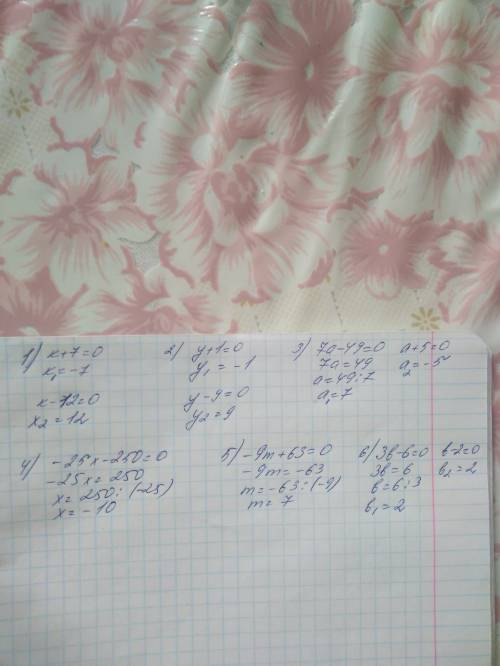 1) x+7=0
x₁=-7
x-12=0
x₂=12
2) y+1=0
y₁=-1
y-9=0
y₂=9
3) 7a-49=0 a+5=0
7a=49 a₂=-5
a=49:7
a₁=7
4) -25x-250=0
-25x=250
x=250:(-25)
x=-10
5) -9m+63=0
-9m=-63
m=-63:(-9)
m=7
6) 3b-6=0 b-2=0
3b=6 b₂=2
b=6:3
b₁=2